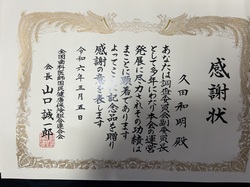 感謝状
久田和明 殿
あなたは調査委員会副委員長
として多年にわたり本会の運営
発展に尽力されその功績は
まことに顕著であります
よってここに記念品を贈り
感謝の意を表します
令和六年三月五日
全国歯科医師国民健康保険組合連合会
会長 山口誠一郎